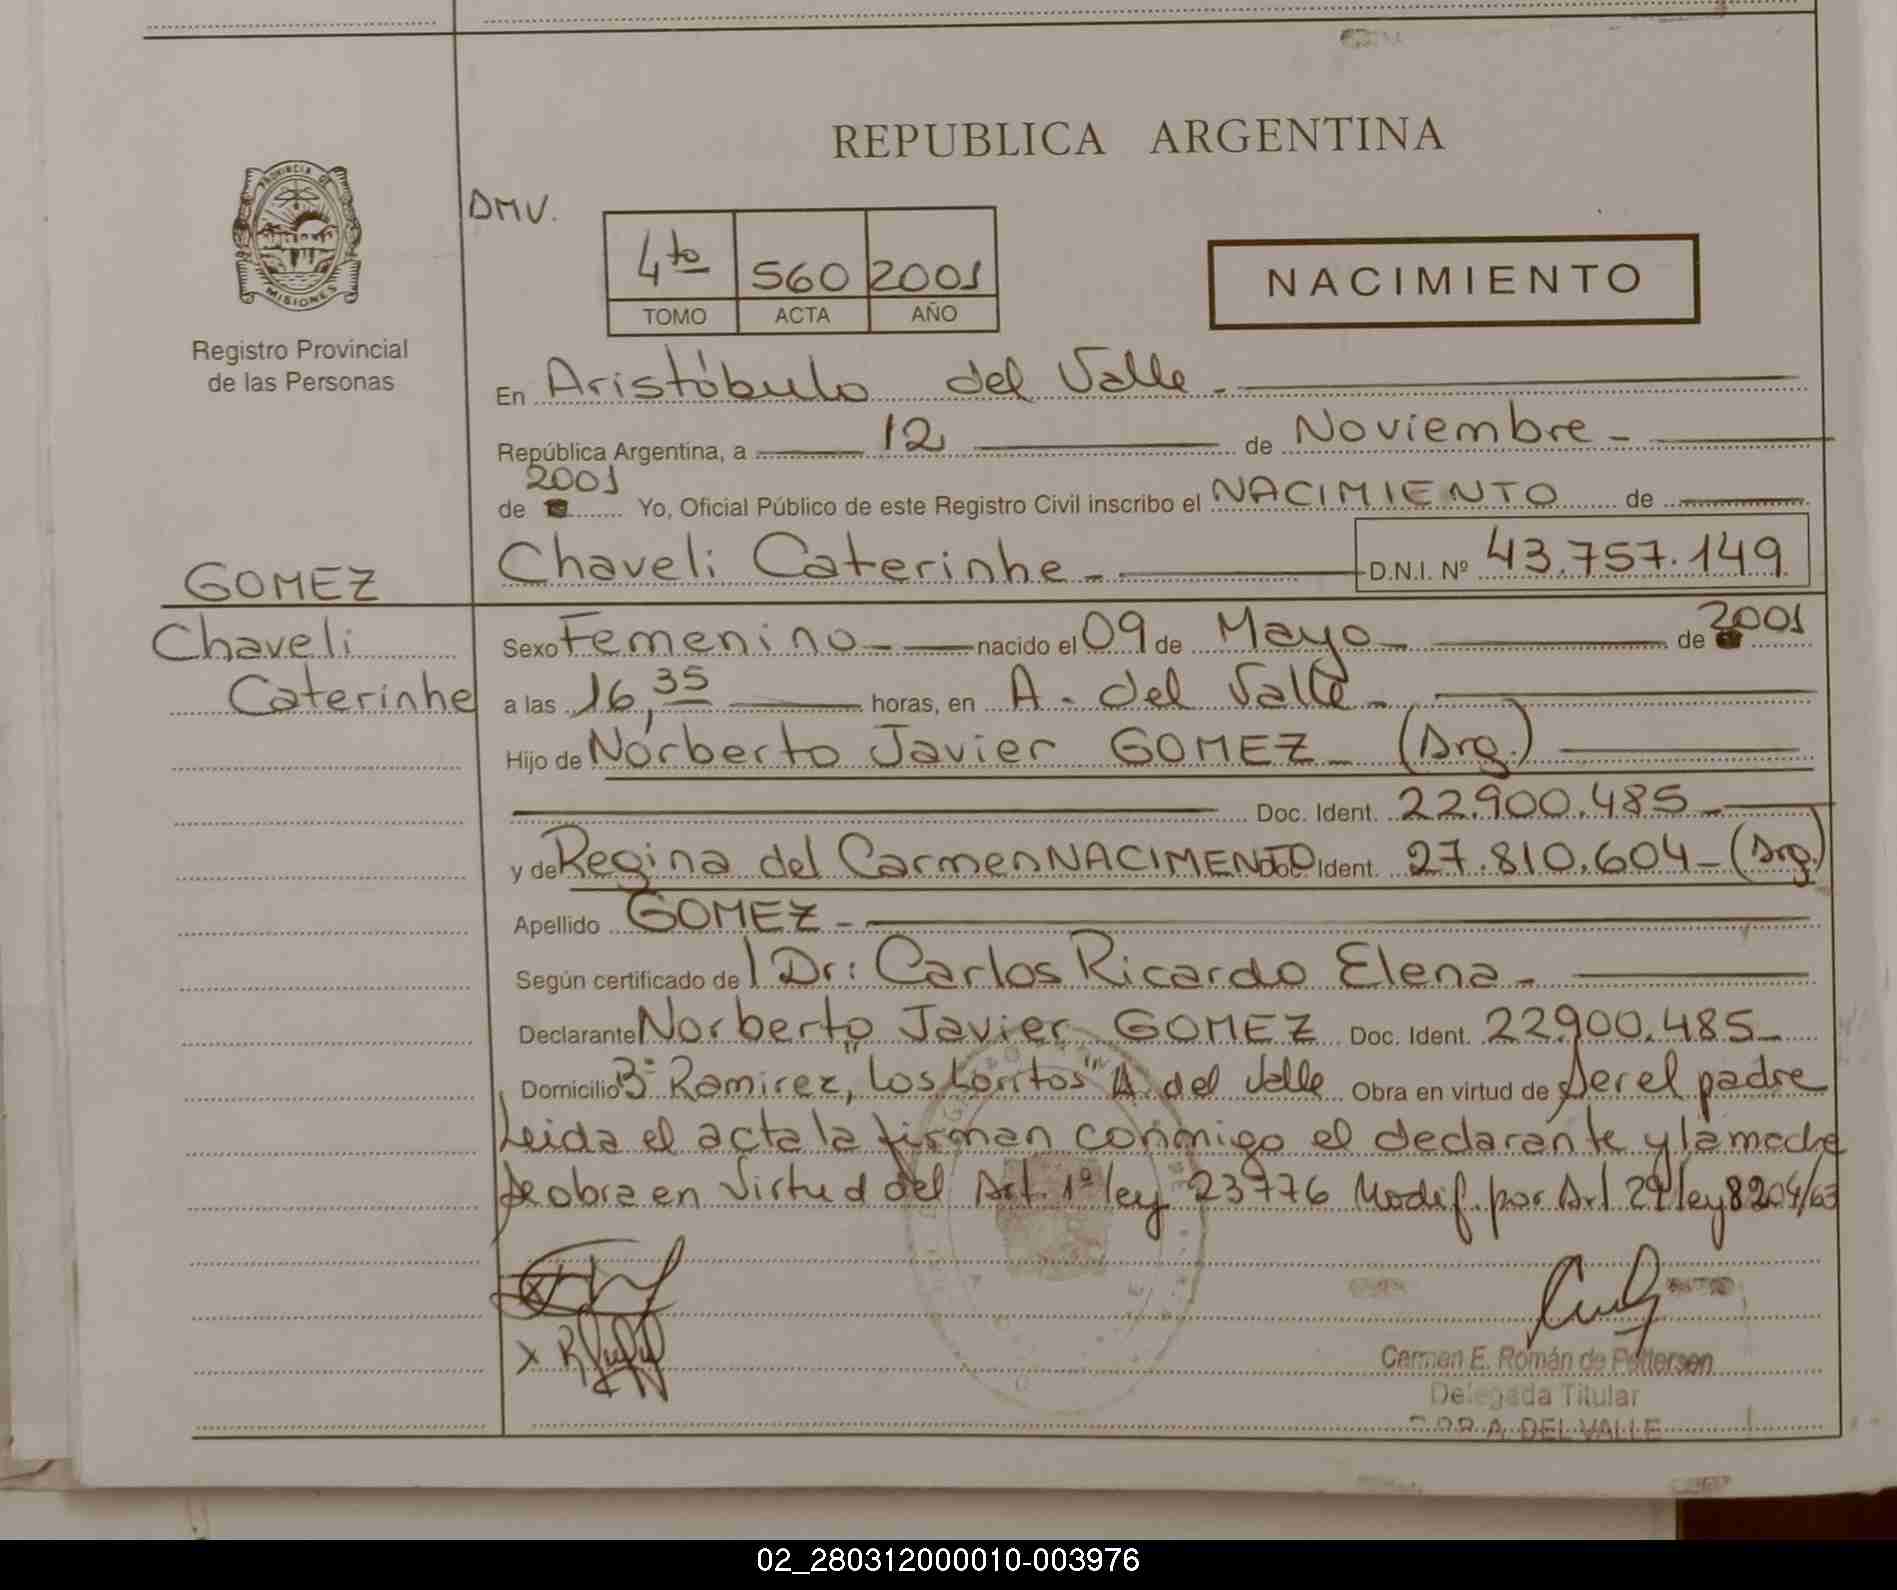 REPUBLICA ARGENTINA
PROVINCIA DE
MISIONES
Registro Provincial
de las Personas
DMV.
4to 560 2001
TOMO ACTA AÑO
NACIMIENTO
En Aristóbulo del Valle.
República Argentina, a 12 de Noviembre
2001
de Yo, Oficial Público de este Registro Civil inscribo el NACIMIENTO de
Chaveli Caterinhe D.N.I. Nº 43.757.149
GOMEZ
Chaveli
Caterinhe
Sexo Femenino nacido el 09 de Mayo de 2001
a las 16,35 horas, en A. del Valle
Hijo de Norberto Javier GOMEZ (Arg.)
Doc. Ident. 22.900.485
y de Regina del Carmen NACIMENTO Doc. Ident. 27.810.604 (Arg.)
Apellido GOMEZ
Según certificado de Dr: Carlos Ricardo Elena
Declarante Norberto Javier GOMEZ Doc. Ident. 22.900.485
Domicilio Bº Ramirez, "Los Loritos" A. del Valle Obra en virtud de ser el padre
Leida el acta la firman conmigo el declarante y la madre
se obra en virtud del Art. 1º ley 23776 Modif. por Art 29 ley 8204/63
Carmen E. Román de Pettersen
Delegada Titular
A. DEL VALLE
02_280312000010-003976